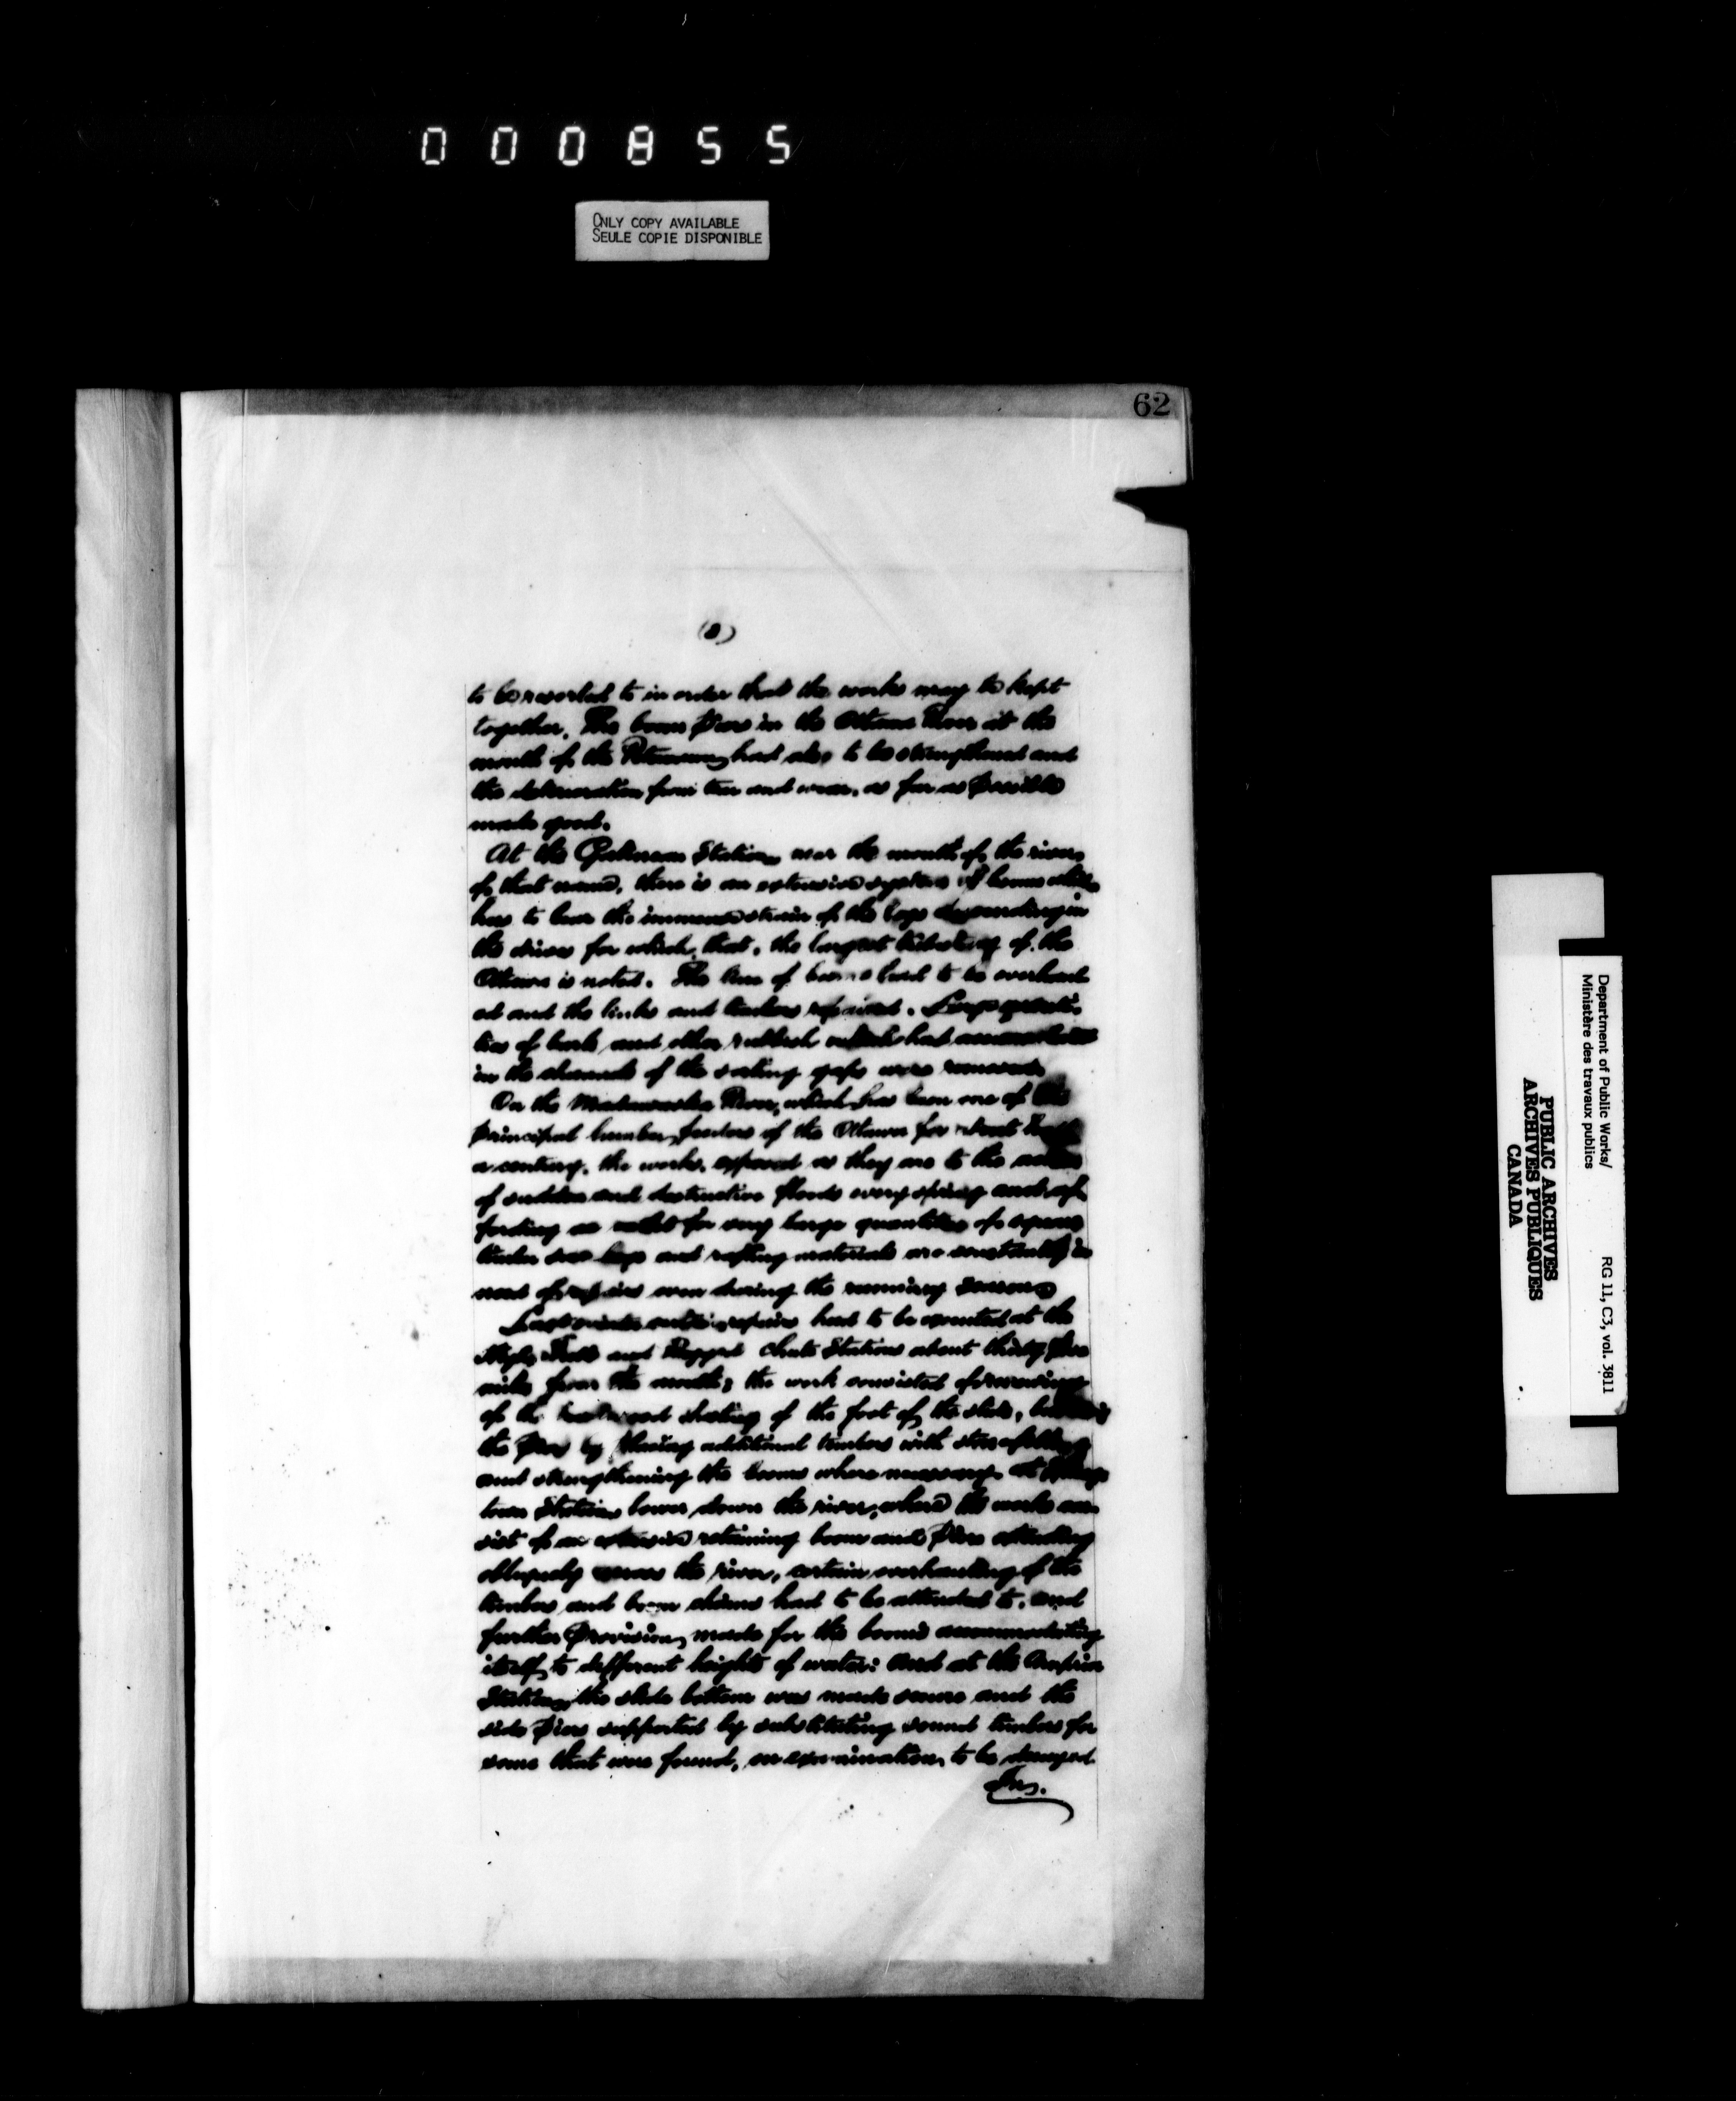 000855
ONLY COPY AVAILABLE
SEULE COPIE DISPONIBLE
62
(8)
to be resorted to in order that the works may be kept
together. The boom piers in the Ottawa River at the
mouth of the Petawawa had also to be strengthened and
the deterioration from tear and wear, as far as possible
made good.
At the Gatineau Station near the mouth of the river
of that name, there is an extensive system of booms which
has to bear the immense strain of the logs descending in
the drives for which, that, the largest tributary of the
Ottawa is noted. The line of booms had to be overhaul
ed and the links and timbers repaired. Large quanti
ties of bark and other rubbish which had accumulated
in the channels of the sorting gaps were removed.
On the Madawaska River, which has been one of the
principal lumber feeders of the Ottawa for about half
a century, the works, exposed as they are to the action
of sudden and destructive floods every spring and af
fording an outlet for very large quantities of square
timber saw logs and rafting materials are constantly in
need of repairs even during the running season.
Last winter repairs had to be executed at the
High Falls and Ragged Chute Stations about thirty five
miles from the mouth; the work consisted of renewing
of the hardwood sheeting of the foot of the slide,
the piers by placing additional timbers with stone filling
and strengthening the booms where necessary. At Springtown
Station lower down the river, where the works con
sist of an extensive retaining boom and piers extending
obliquely across the river, certain overhauling of the
timbers and boom chains had to be attended to, and
further provision made for the booms accommodating
itself to different heights of water: and at the Arnprior
Station, the slide bottom was made secure and the
side piers supported by substituting sound timbers for
some that were found, on examination, to be decayed.
Department of Public Works/
Ministère des travaux publics
RG 11, C3, vol. 3811
PUBLIC ARCHIVES
ARCHIVES PUBLIQUES
CANADA